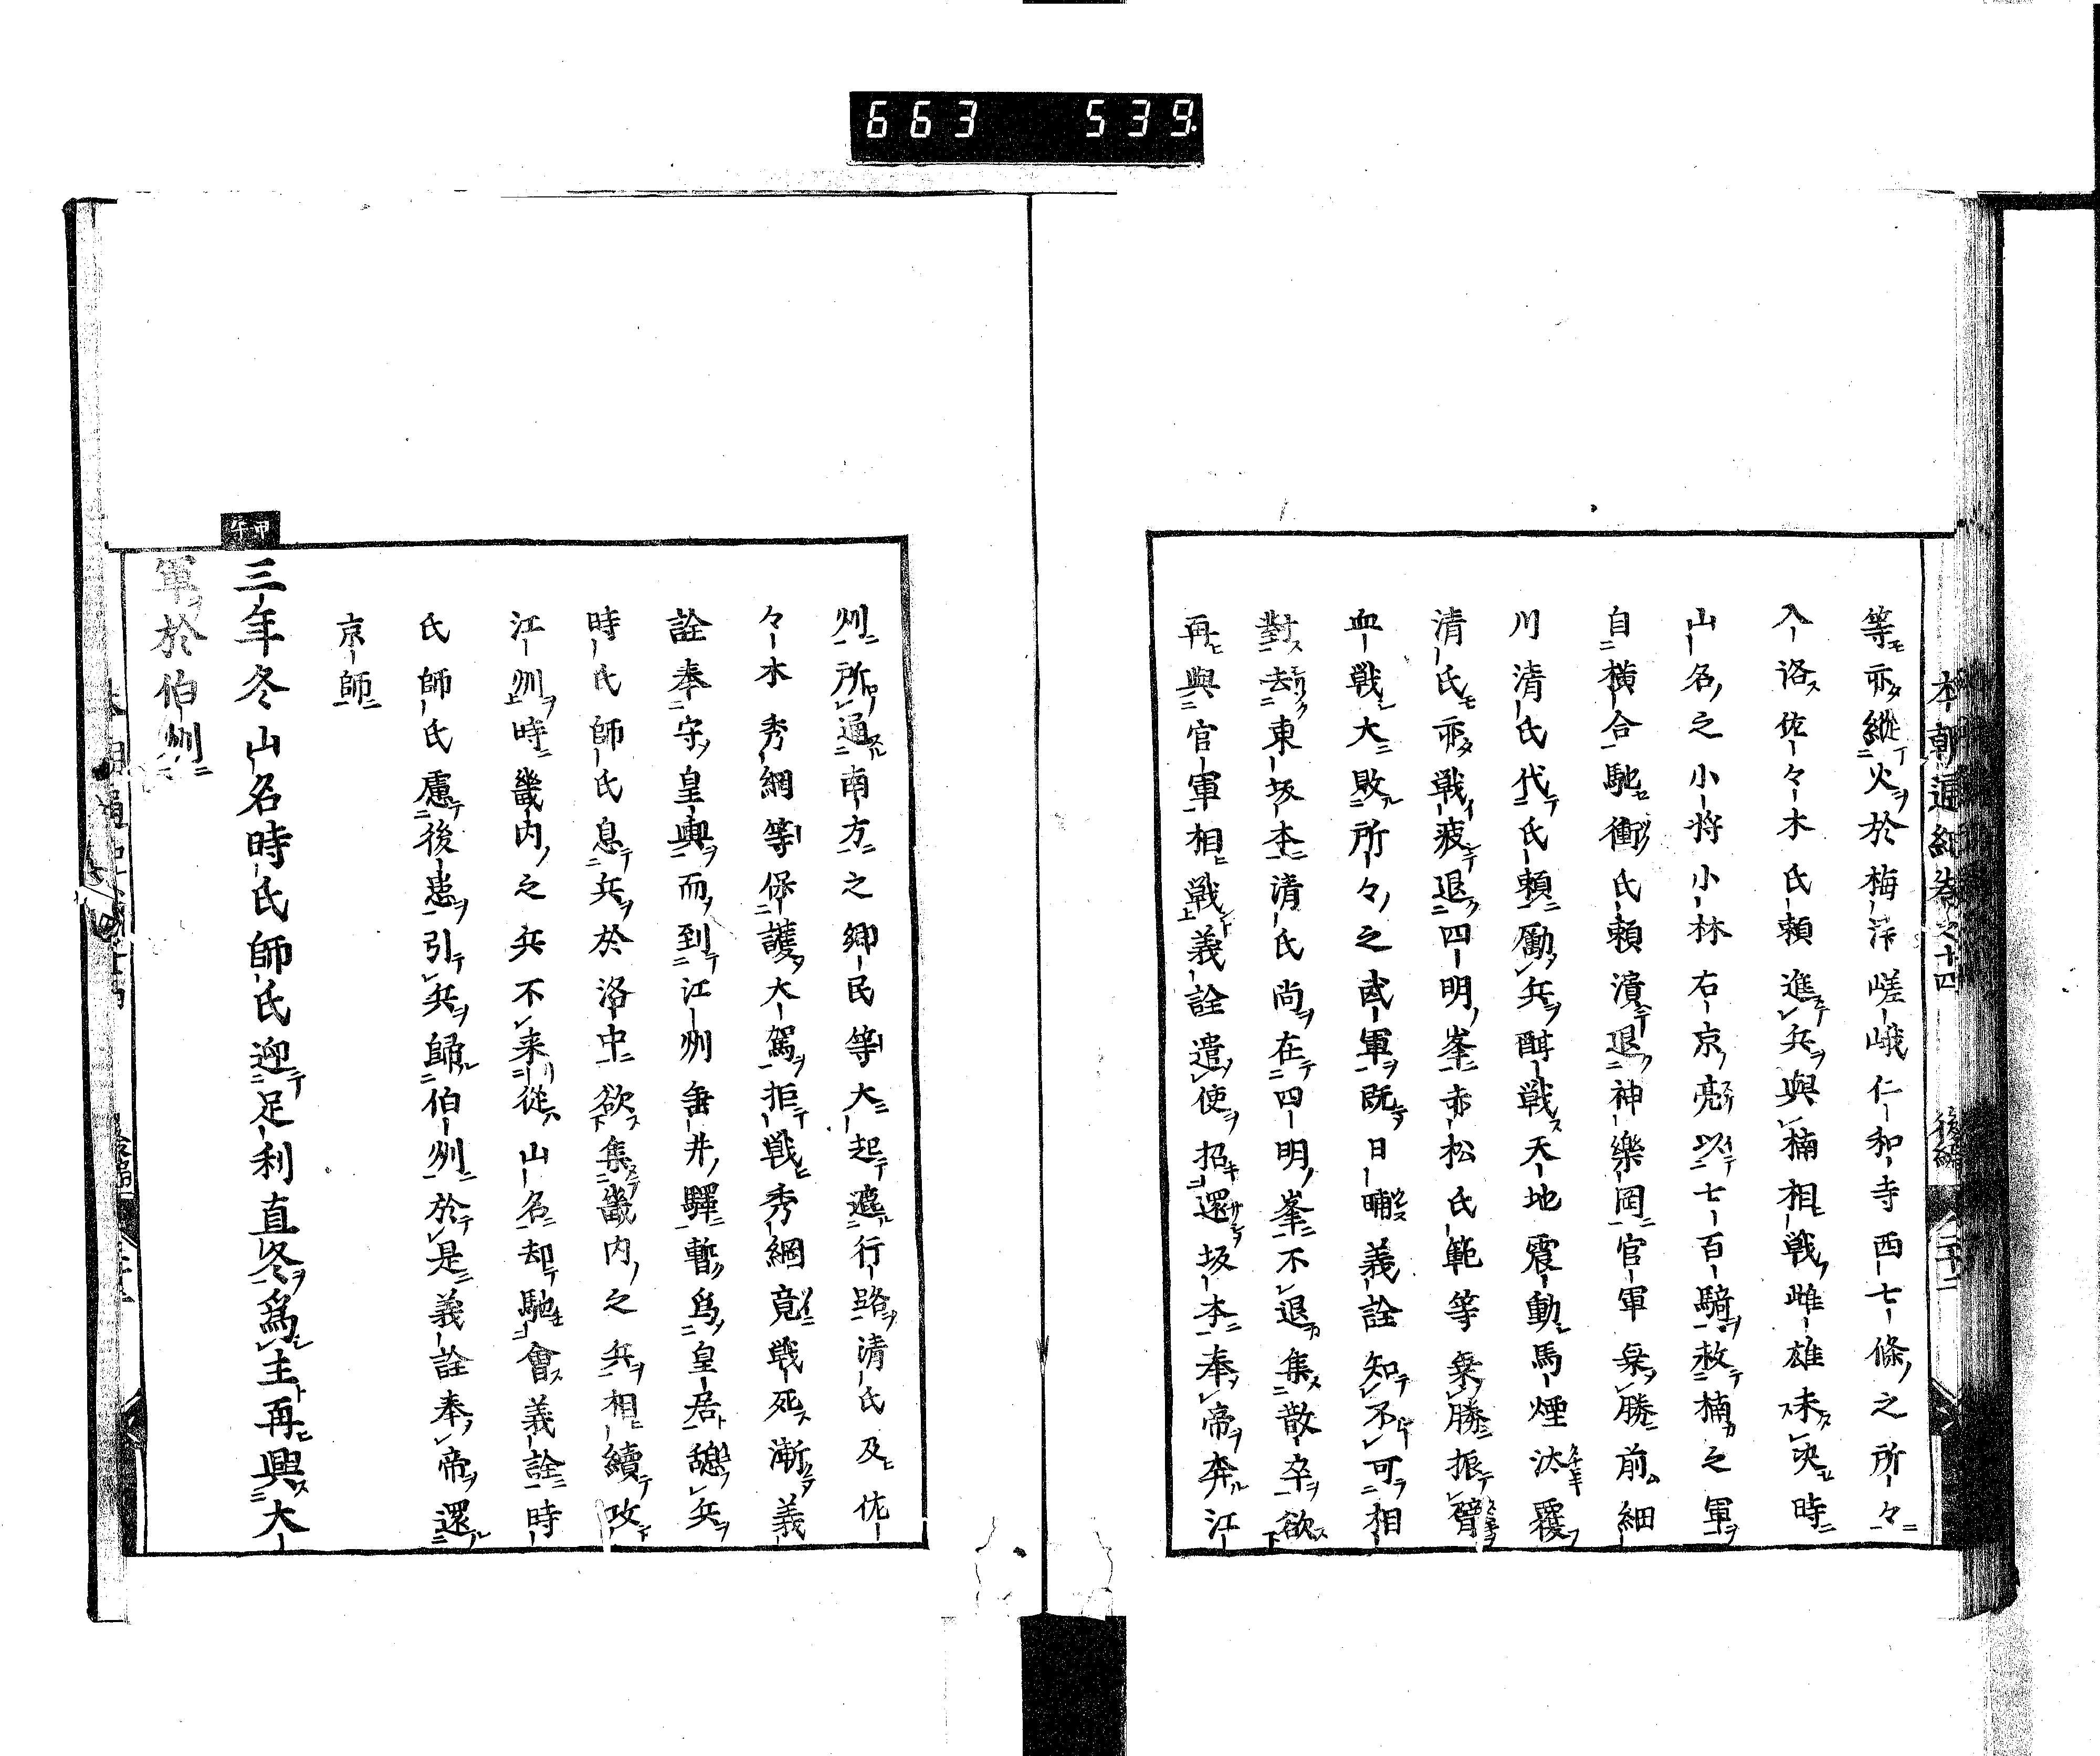 663 539
本朝通紀巻之十四 後編
等亦縱火於梅津嵯峨仁和寺西七條之所々
入洛佐々木氏頼進兵與楠相戦雌雄未决時
山名之小将小林右京亮以七百騎救楠之軍
自横合馳衝氏頼濆退神樂岡官軍乗勝前細
川清氏代氏頼勵兵酣戦天地震動馬煙汰覆
清氏亦戦疲退四明峯赤松氏範等乗勝振臂
血戦大敗所々之武軍既日晡義詮知不可相
對去東坂本清氏尚在四明峯不退集散卒欲
再與官軍相戦義詮遣使招還坂本奉帝奔江
州所通南方之郷民等大起遮行路清氏及佐
々木秀綱等保護大駕拒戦秀綱竟戦死漸義
詮奉守皇輿而到江州垂井驛暫爲皇居憩兵
時氏師氏息兵於洛中欲集畿内之兵相續攻
江州時畿内之兵不来從山名却馳會義詮時
氏師氏慮後患引兵歸伯州於是義詮奉帝還
京師
甲午
三年冬山名時氏師氏迎足利直冬爲主再興大
軍於伯州